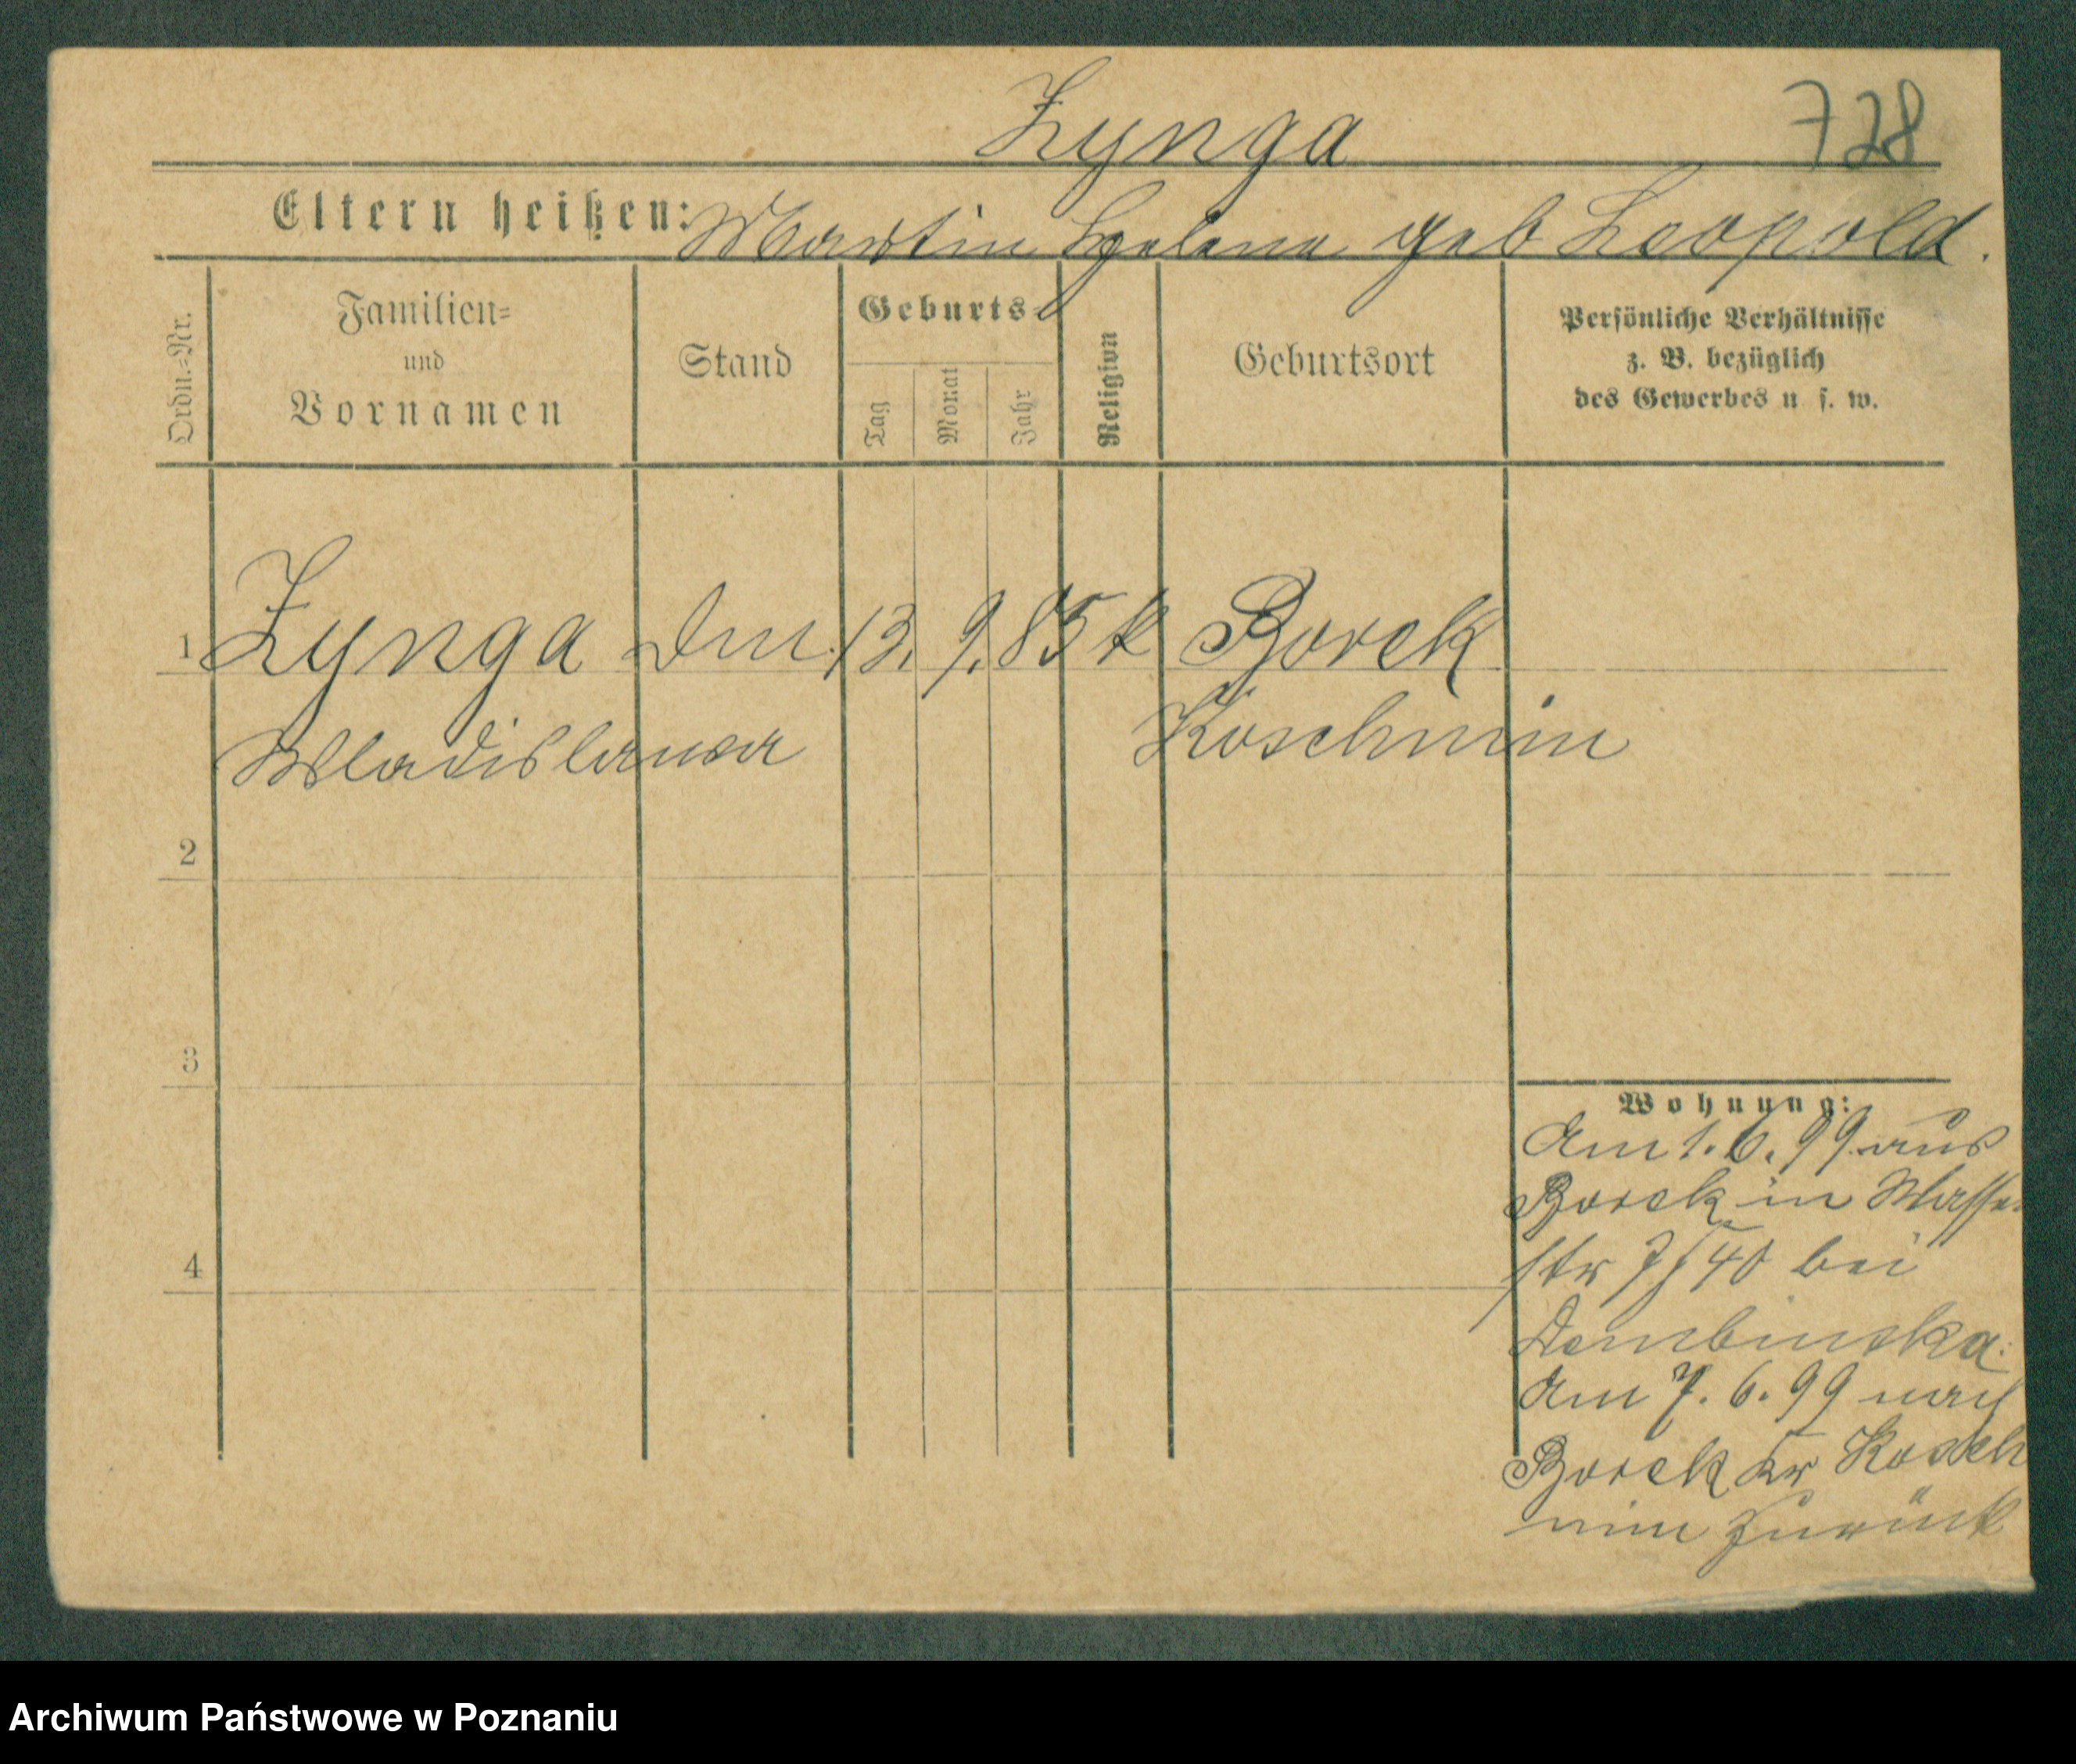 Zynga 728
Eltern heißen: Martin Helena geb Leopold.
Ordn.=Nr.
Familien=
und
Vornamen
Stand
Geburts=
Tag
Monat
Jahr
Religion
Geburtsort
Persönliche Verhältnisse
z. B. bezüglich
des Gewerbes u. s. w.
1 Zynga 13. 9. 85 k Borek
Wladislawa Koschmin
2
3
4
Wohnung:
Am 1. 6. 99 aus
Borek in Wasser
str 40 bei
Dembinska.
Am 7. 6. 99 nach
Borek Kr Kosch
min zurück
Archiwum Państwowe w Poznaniu